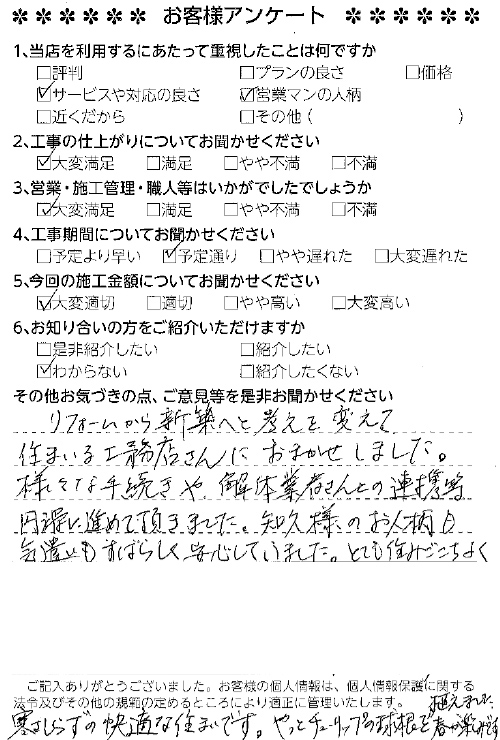 ✽ ✽ ✽ ✽ ✽ ✽ お客様アンケート ✽ ✽ ✽ ✽ ✽ ✽
1、当店を利用するにあたって重視したことは何ですか
□評判 □プランの良さ □価格
☑サービスや対応の良さ ☑営業マンの人柄
□近くだから □その他 ( )
2、工事の仕上がりについてお聞かせください
☑大変満足 □満足 □やや不満 □不満
3、営業・施工管理・職人等はいかがでしたでしょうか
☑大変満足 □満足 □やや不満 □不満
4、工事期間についてお聞かせください
□予定より早い ☑予定通り □やや遅れた □大変遅れた
5、今回の施工金額についてお聞かせください
☑大変適切 □適切 □やや高い □大変高い
6、お知り合いの方をご紹介いただけますか
□是非紹介したい □紹介したい
☑わからない □紹介したくない
その他お気づきの点、ご意見等を是非お聞かせください
リフォームから新築へと考えを変えて
住まいる工務店さんにおまかせしました。
様々な手続きや、解体業者さんとの連携等
円滑に進めて頂きました。知久様のお人柄も
気遣いもすばらしく安心していました。とても住みごこちよく
ご記入ありがとうございました。お客様の個人情報は、個人情報保護に関する
法令及びその他の規範の定めるところにより適正に管理いたします。
寒さしらずの快適な住まいです。やっとチューリップの球根を植えました 春が楽しみです